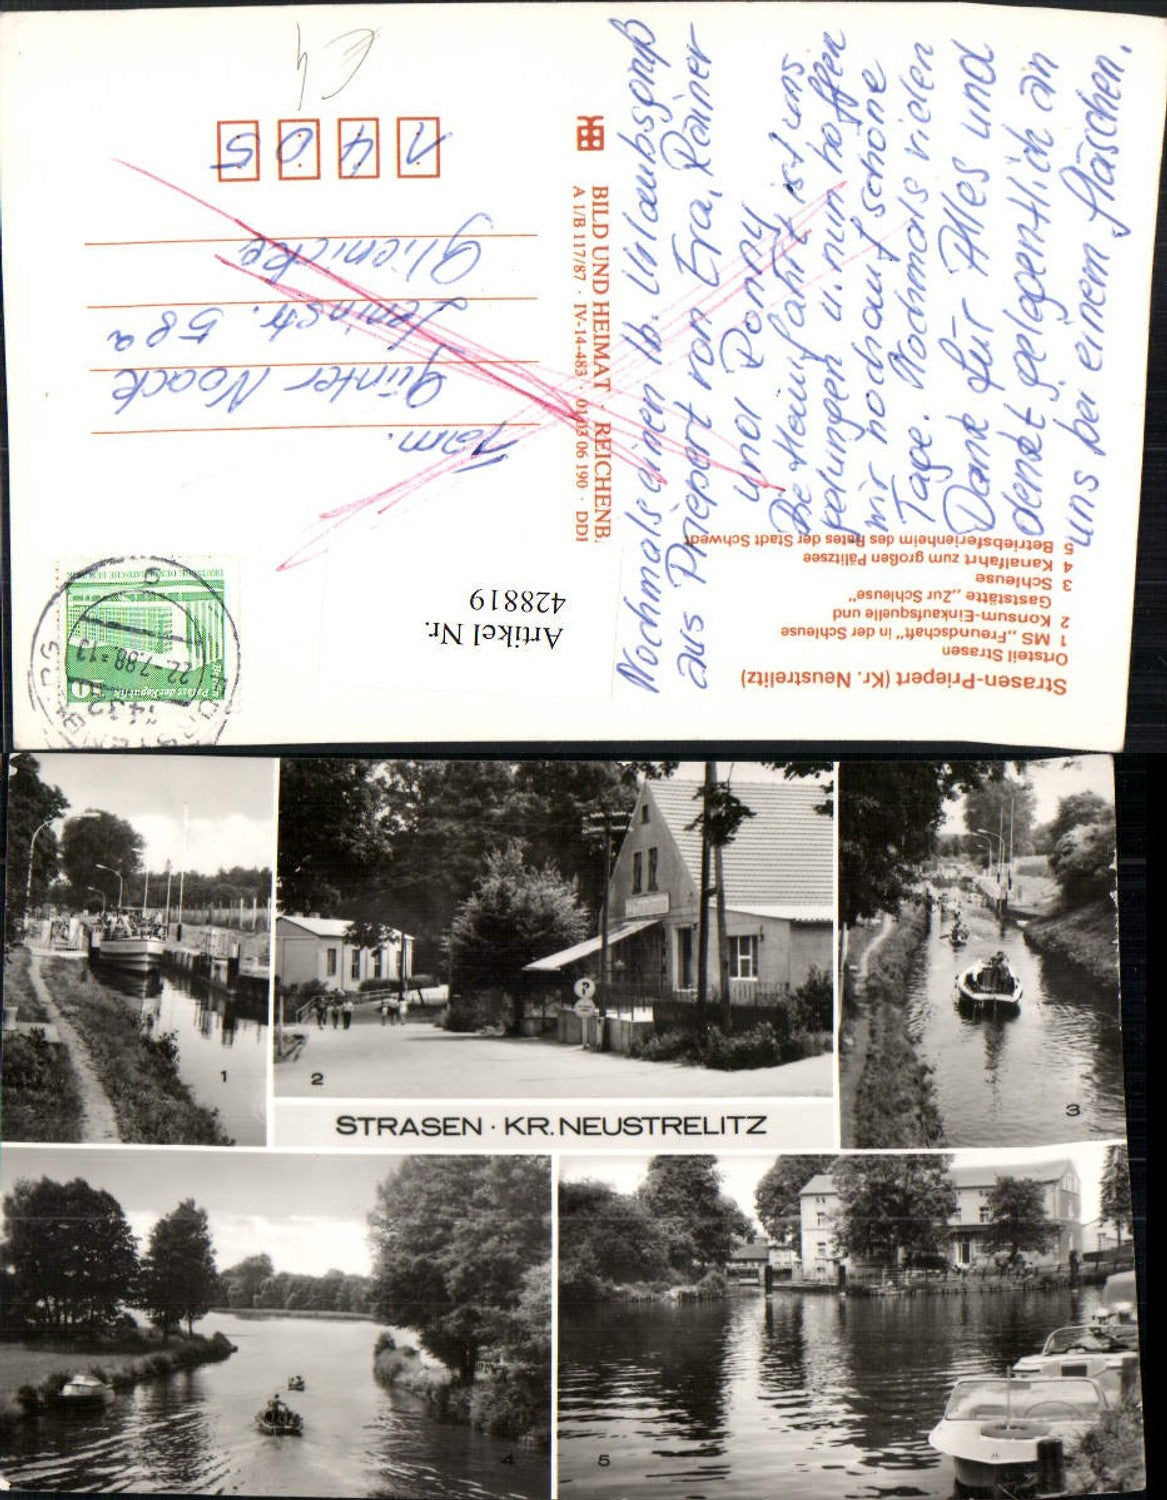 Strasen-Priepert (Kr. Neustrelitz)
Ortsteil Strasen
1 MS „Freundschaft" in der Schleuse
2 Konsum-Einkaufsquelle und
Gaststätte „Zur Schleuse"
3 Schleuse
4 Kanalfahrt zum großen Pälitzsee
5 Betriebsferienheim des Rates der Stadt Schwedt
Nochmals einen lb. Urlaubsgruß
aus Priepert von Eva, Rainer
und Ronny
Die Heimfahrt ist uns
gelungen u. nun hoffen
wir noch auf schöne
Tage. Nochmals vielen
Dank für Alles und
denkt gelegentlich an
uns bei einem Fläschen.
BILD UND HEIMAT · REICHENB.
A 1/B 117/87 · IV-14-483 · 01 03 06 190 · DDR
Artikel Nr.
428819
Palast der Republik
10
22.7.88-13
1432
FÜRSTENBERG
Fam.
Günter Noack
Leninstr. 58a
Glienicke
1 4 0 5
€4
1
2
3
STRASEN · KR. NEUSTRELITZ
4
5